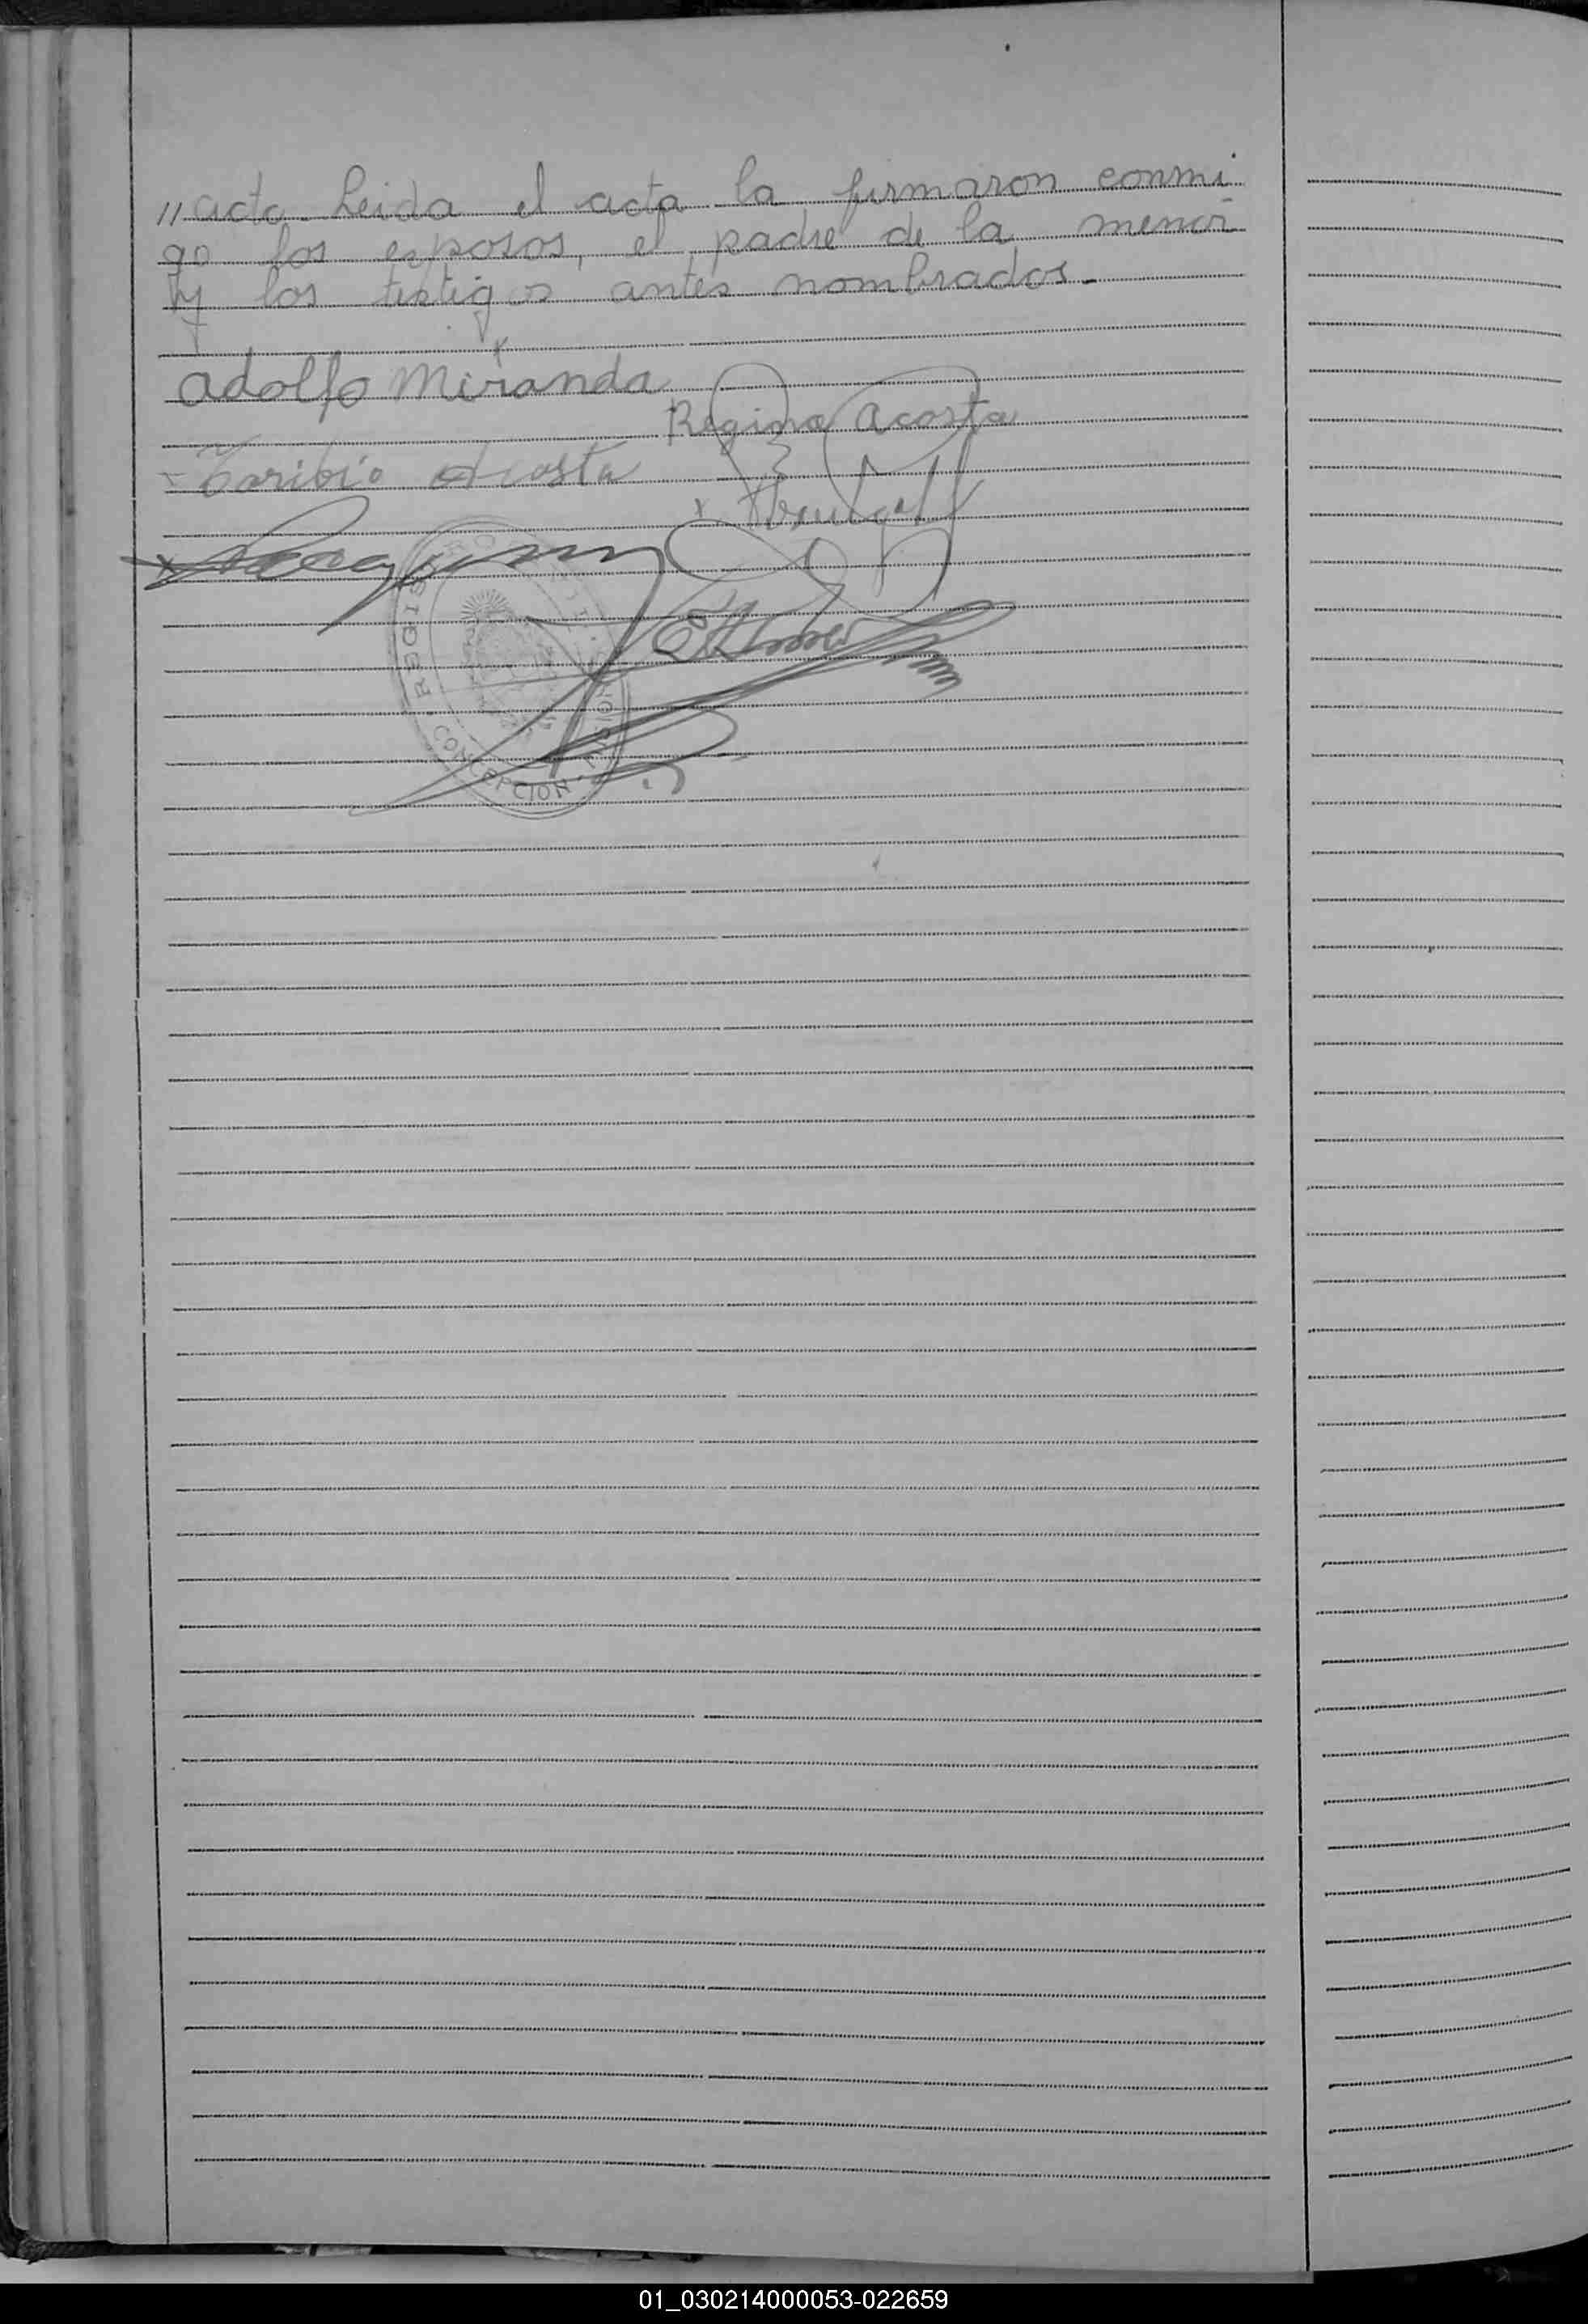 " acto. Leida el acta la firmaron conmi
go los esposos, el padre de la menor
y los testigos antes nombrados.-
Adolfo Miranda
Regina Acosta
- Toribio Acosta
CONCEPCION
01_030214000053-022659